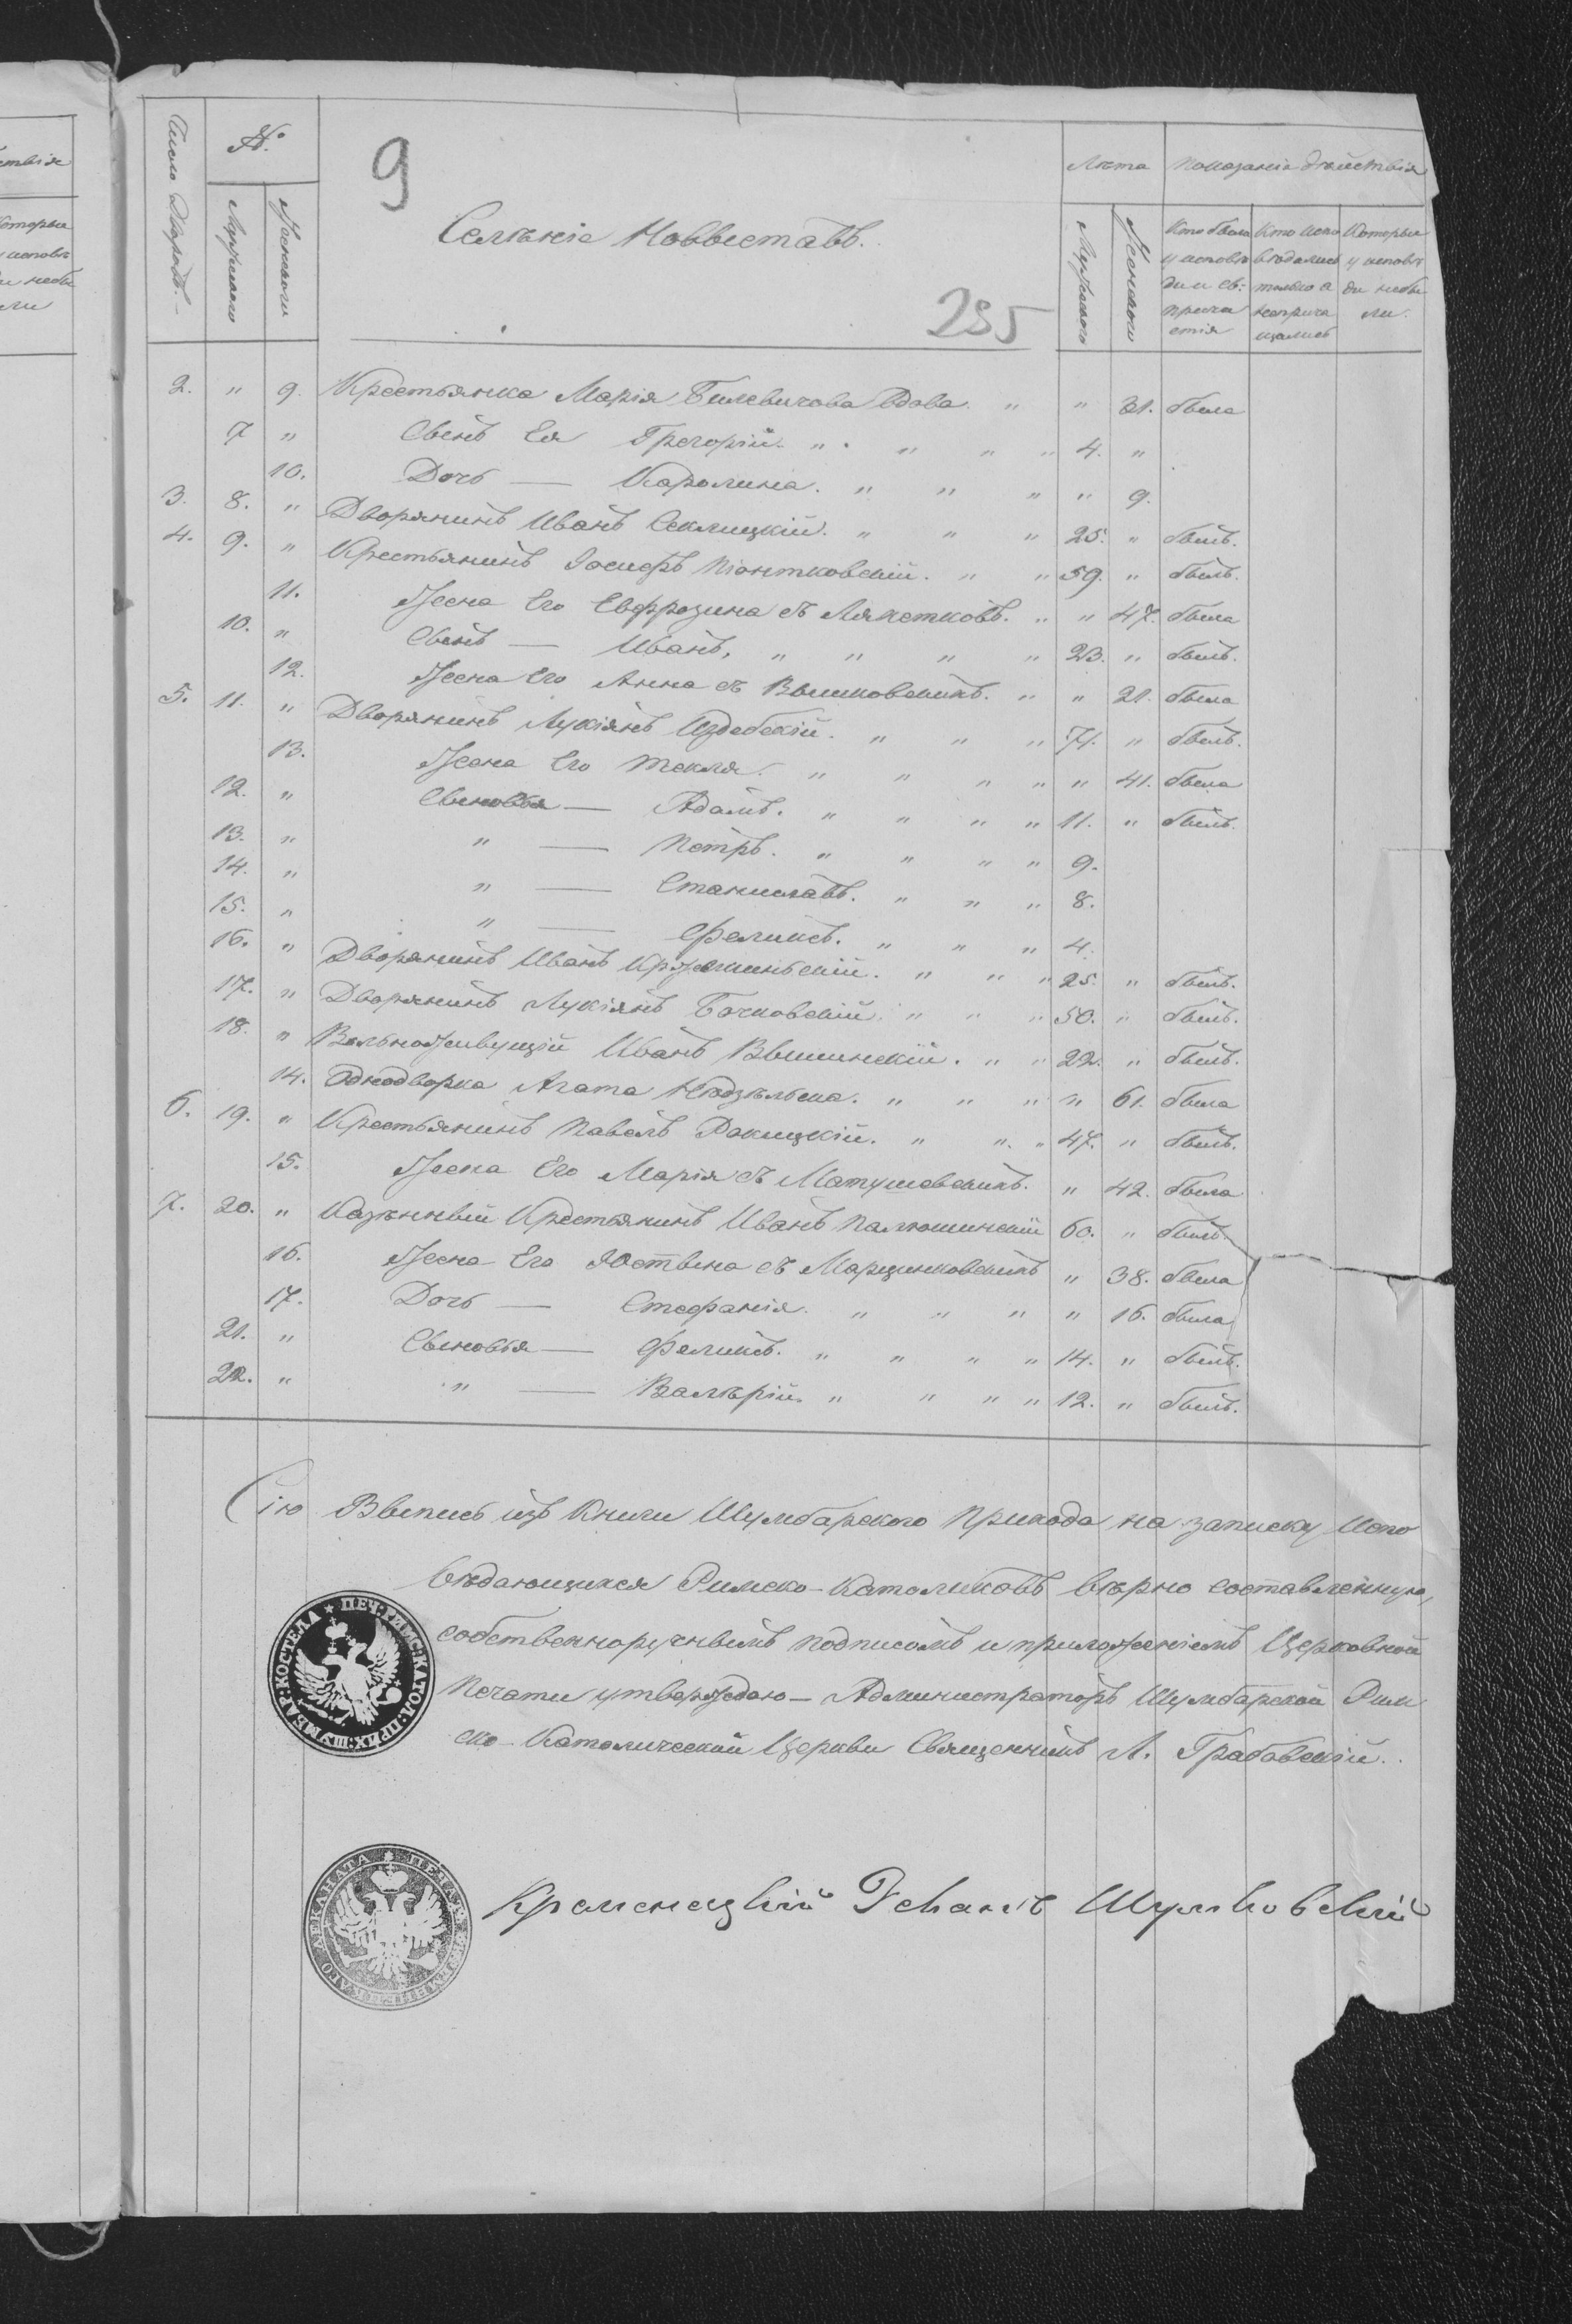 ствія
которые
у исповѣ
ди небы
ли
9
285
Число Дворовъ.
№.
Мужеского
Женского
Селѣніе Новыставъ.
Лѣта
Показаніе дѣйствія
Мужеского
Женского
Кто былъ у исповѣди и св: причастія
Кто исповѣдались только а непричащались
Которые у исповѣди небыли.
2. " 9. Крестьянка Марія Билевичова Вдова. " " 31. была
7 " Сынъ Ея Грегорій. " " " " 4. "
10. Дочь — Каролина. " " " " 9.
3. 8. " Дворянинъ Иванъ Секлицкій. " " " 25. " былъ.
4. 9. " Крестьянинъ Іосифъ Піонтковскій. " " 59. " былъ.
11. Жена Его Евфрозина съ Лякетковъ. " " 47. была
10. " Сынъ — Иванъ, " " " " 23. " былъ.
12. Жена Его Анна съ Вышковскихъ. " " 21. была
5. 11. " Дворянинъ Лукіянъ Издебскій. " " " 71. " былъ.
13. Жена Его Текля. " " " " " 41. была
12. " Сыновья — Адамъ. " " " " 11. " былъ.
13. " " — Петръ. " " " " 9.
14. " " — Станиславъ. " " " 8.
15. " " — Феликсъ. " " " 4.
16. " Дворянинъ Иванъ Кржеминьскій. " " " 25. " былъ.
17. " Дворянинъ Лукіянъ Бачковскій. " " " 50. " былъ.
18. " Вольноживущій Иванъ Вышинскій. " " 22. " былъ.
14. Однодворка Агата Нѣдзѣльска. " " " " 61. была
6. 19. " Крестьянинъ Павелъ Ракицкій. " " " 47. " былъ.
15. Жена Его Марія съ Матушевскихъ. " 42. была
7. 20. " Казѣнный Крестьянинъ Иванъ Палюшинскій 60. " былъ.
16. Жена Его Юстына съ Марцинковскихъ " 38. была
17. Дочь — Стефанія. " " " " 16. была
21. " Сыновья — Феликсъ. " " " " 14. " былъ.
22. " " — Валѣрій. " " " " 12. " былъ.
Сію Выпись изъ Книги Шумбарского Прихода на записку Испо
вѣдающихся Римско-Католиковъ вѣрно составленную,
собственноручнымъ подписомъ и приложеніемъ Церковной
Печати утверждаю — Администраторъ Шумбарской Рим
ско-Католической Церкви Священникъ Л. Грабовскій.
ПЕЧ: РИМСКАТОЛ: ПРИХ: ШУМБАР: КОСТЕЛА
Кременецкій Деканъ Шумковскій